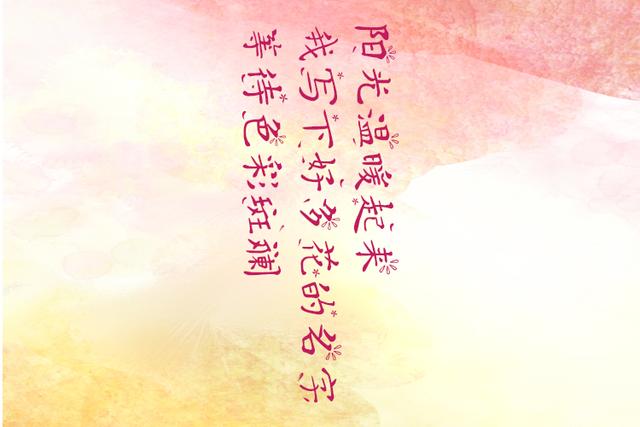 阳光温暖起来
我写下好多花的名字
等待色彩斑斓